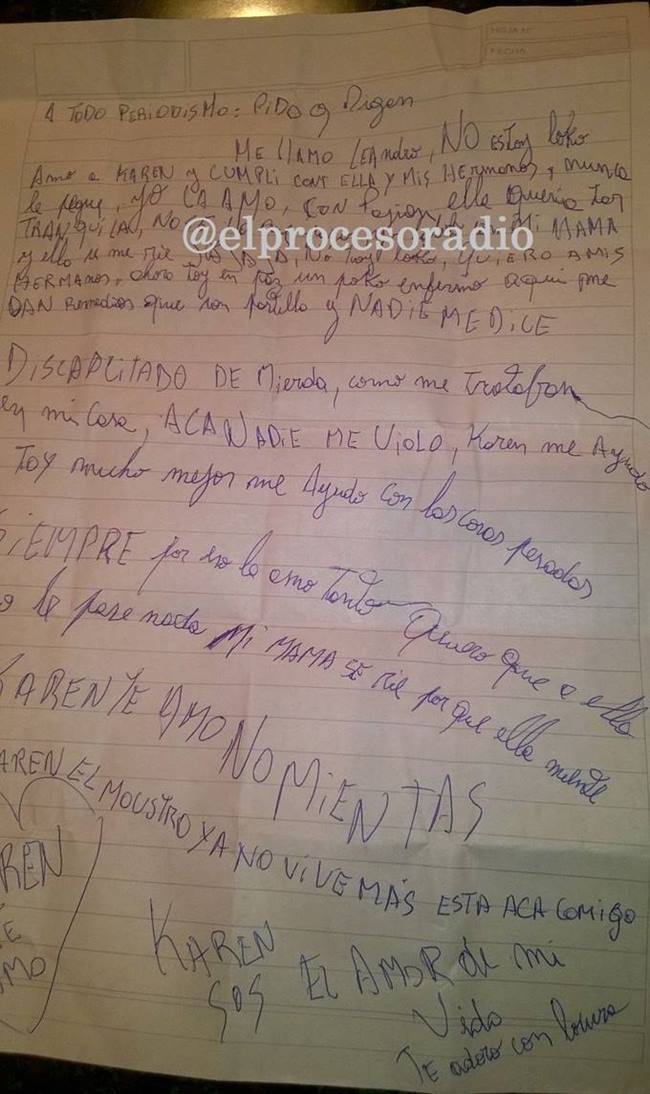 HOJA Nº
FECHA
A TODO PERIODISMO: PIDO q Digan
ME LLAMO LEANdro, NO ESTOY loko
Amo a KAREN y CUMPLI CON ELLA Y MIS HERMANOS, nunca
le pegue, YO LA AMO, CON Pasion, ella Queria
TRANQUILA, NO MI MAMA
@elprocesoradio
y ella se me rie JA JA JA, No Toy loko, QUIERO A MIS
HERMANOS, ahora Toy en paz un poko enfermo aqui me
DAN Remedios que son y NADIE ME DICE
DISCAPACITADO DE Mierda, como me TrataBan
en mi Casa, ACA NADIE ME VIOLO, Karen me Ayudo
Toy mucho mejor me Ayudo con las cosas pesadas
SIEMPRE por eso la amo Tanto Quiero que a ella
no le pase nada Mi MAMA SE rie por que ella miente
KAREN TE AMO NO MiENTAS
KAREN EL MOUSTRO YA NO VIVE MÁS ESTA ACA COMIGO
KAREN
TE
AMO
KAREN
SOS EL AMOR de mi
Vida
TE adoro con locura